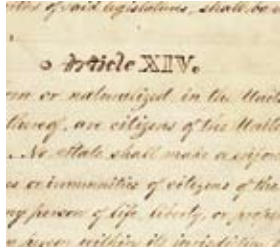 of said legislatures, shall be
Article XIV.
or naturalized in the Unit
thereof, are citizens of the Unit
. No State shall make or enfor
es or immunities of citizens of the
ny person of life, liberty, or pro
person within its jurisdictio